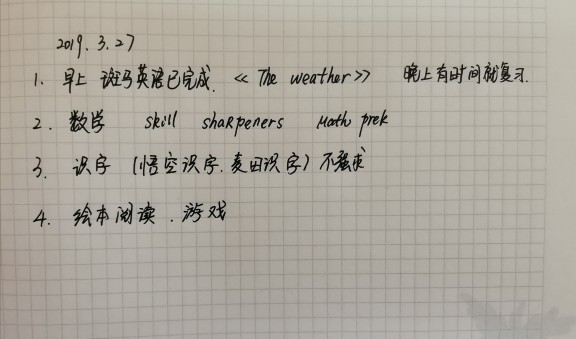 2019.3.27
1. 早上 斑马英语已完成. 《The weather》 晚上有时间就复习.
2. 数学 skill shaRpeners Math prek
3. 识字 (悟空识字.麦田识字) 不强求
4. 绘本阅读.游戏